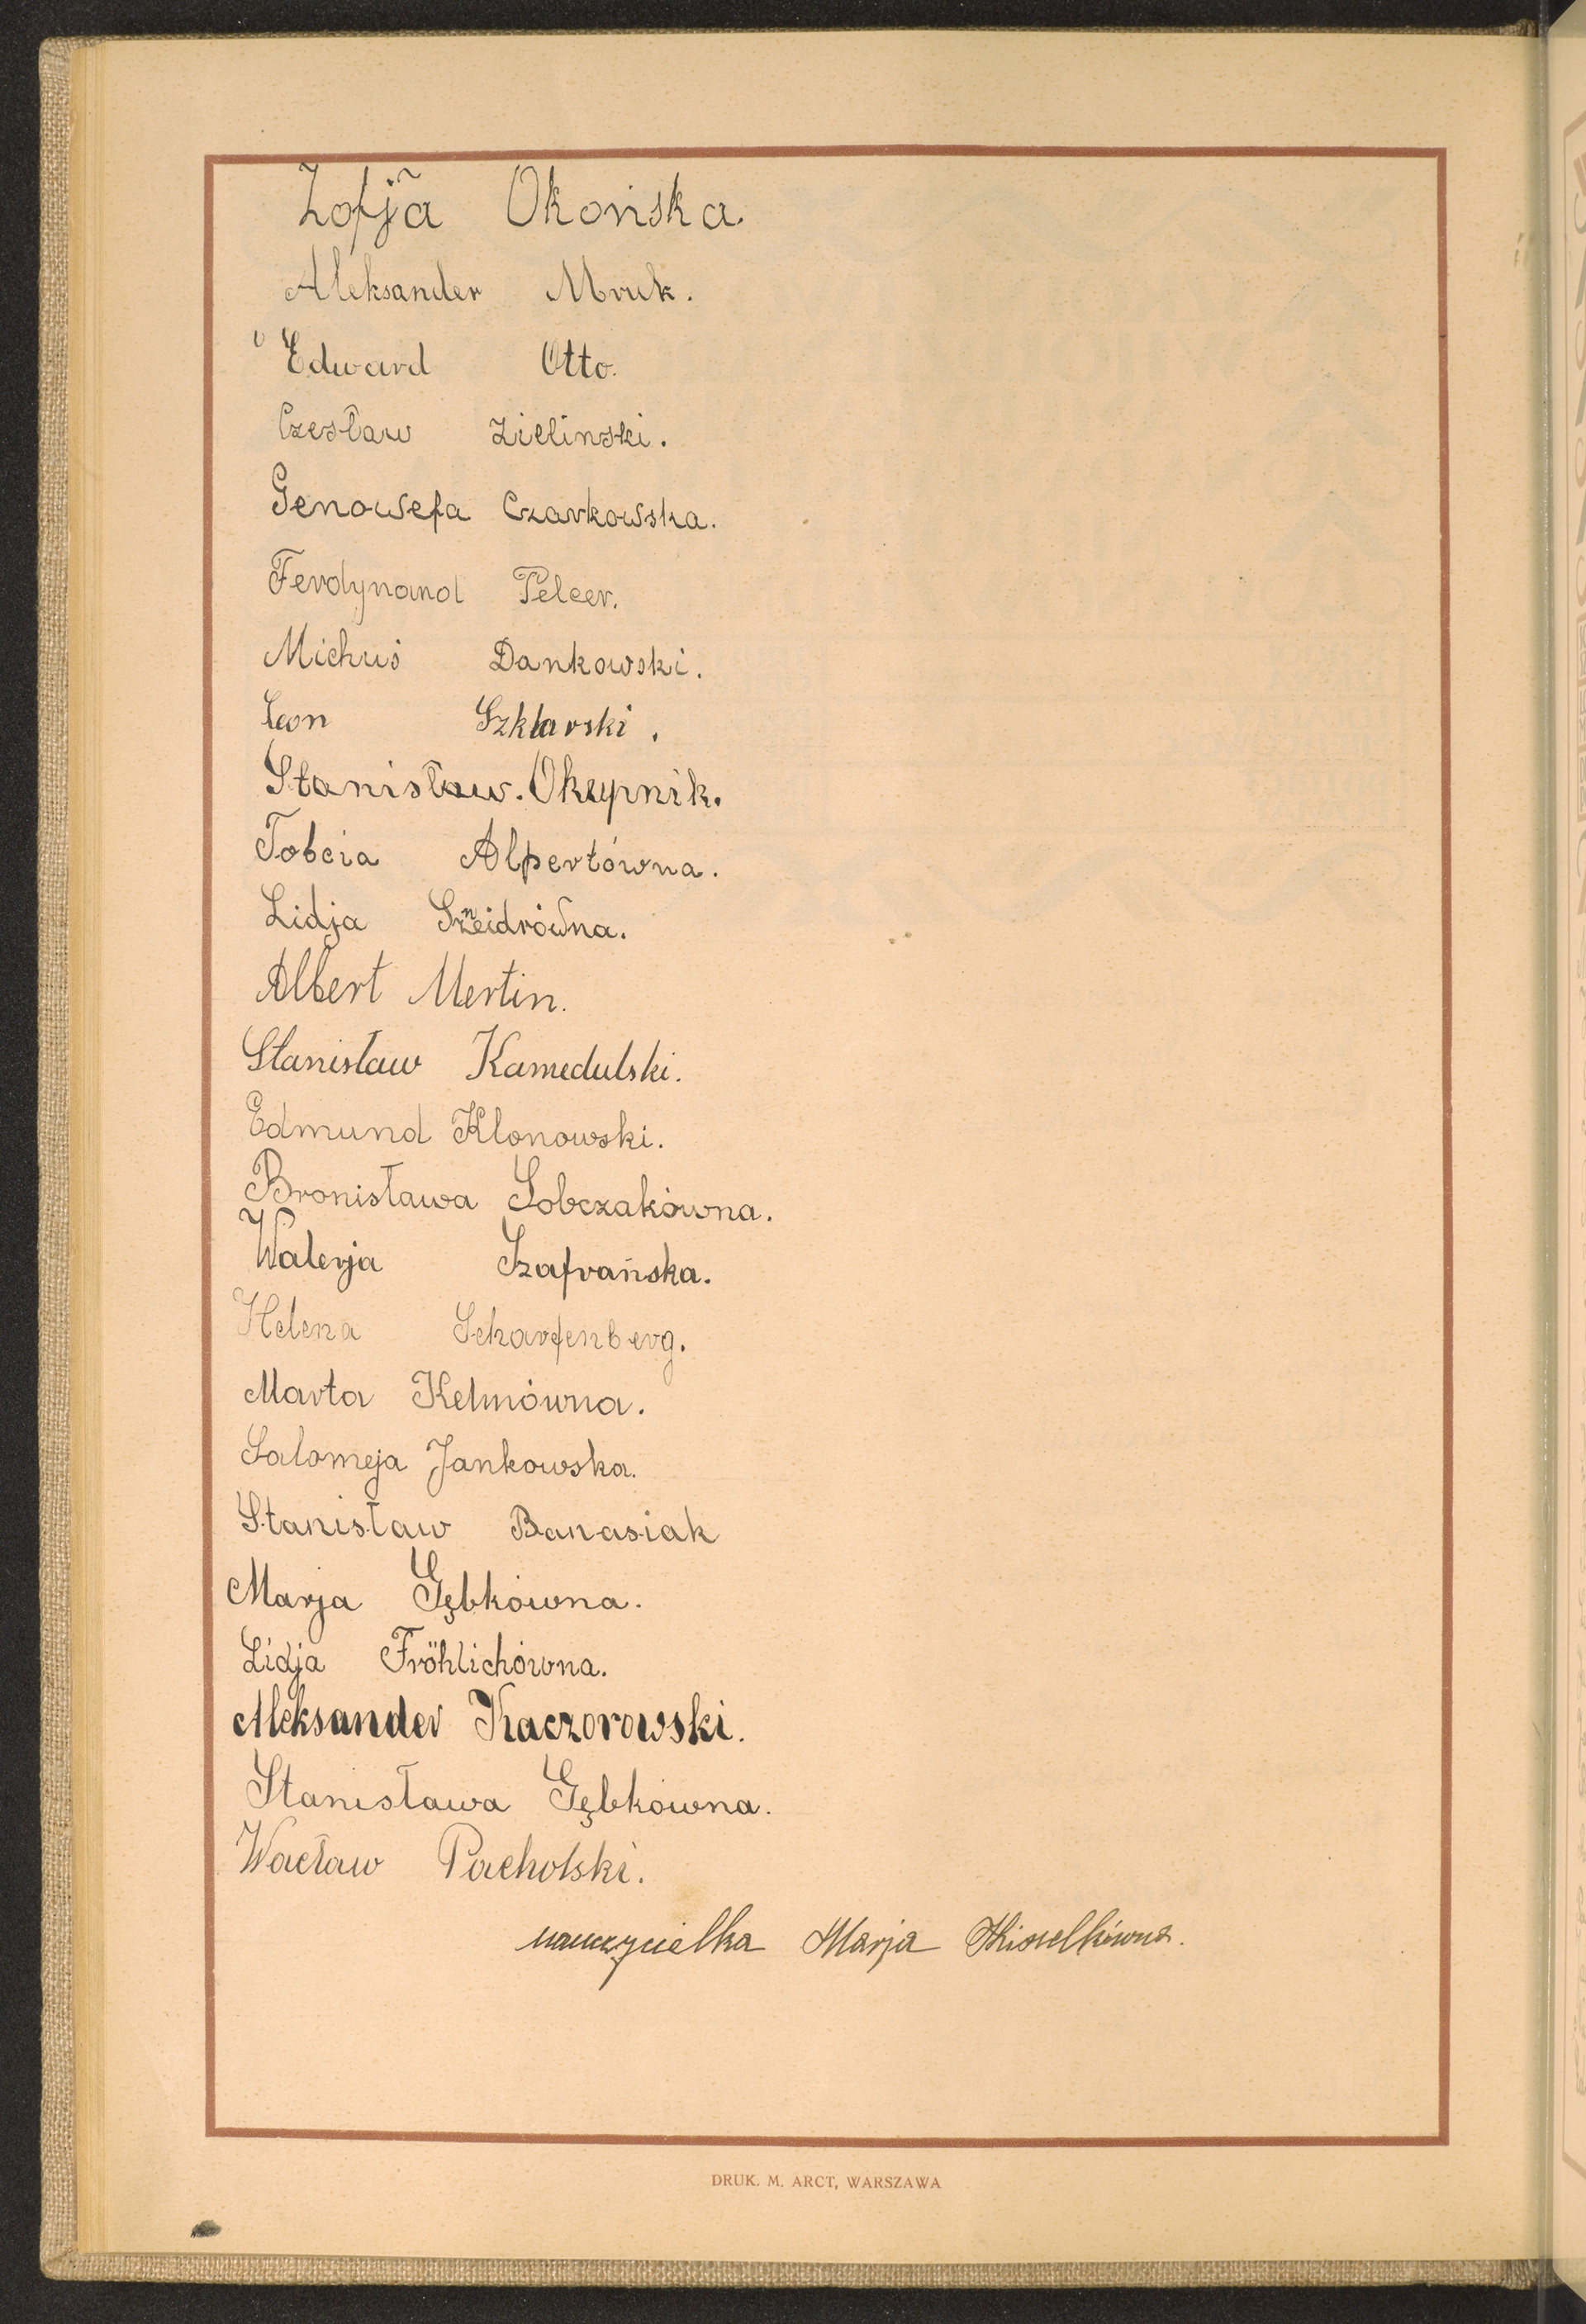 Zofja Okońska
Aleksander Mruk.
Edward Otto.
Czesław Zielinski.
Genowefa Czarkowska.
Ferdynand Pelcer.
Michuś Dankowski.
Leon Szklarski.
Stanisław. Okupnik.
Tobcia Alpertówna.
Lidja Szneidrówna.
Albert Mertin.
Stanisław Kamedulski.
Edmund Klonowski.
Bronisława Sobczakówna.
Walerja Szafrańska.
Helena Scharfenberg.
Marta Kelmówna.
Salomeja Jankowska.
Stanisław Banasiak
Marja Gębkówna.
Lidja Fröhlichówna.
Aleksander Kaczorowski.
Stanisława Gębkówna.
Wacław Pacholski.
nauczycielka Marja
DRUK. M. ARCT, WARSZAWA